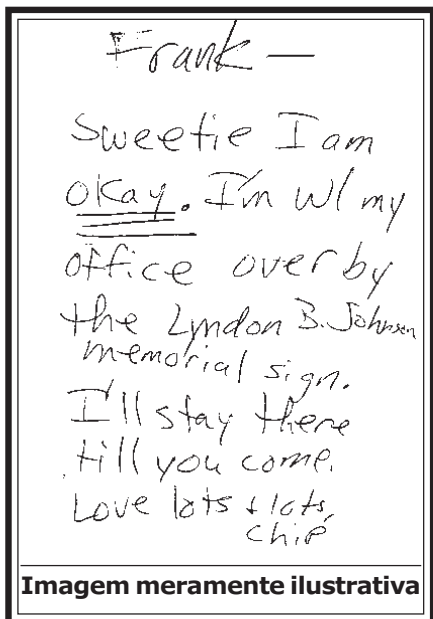 Frank —
Sweetie I am
okay. I'm w/ my
office over by
the Lyndon B. Johnson
memorial sign.
I'll stay there
till you come.
Love lots + lots,
Chip
Imagem meramente ilustrativa